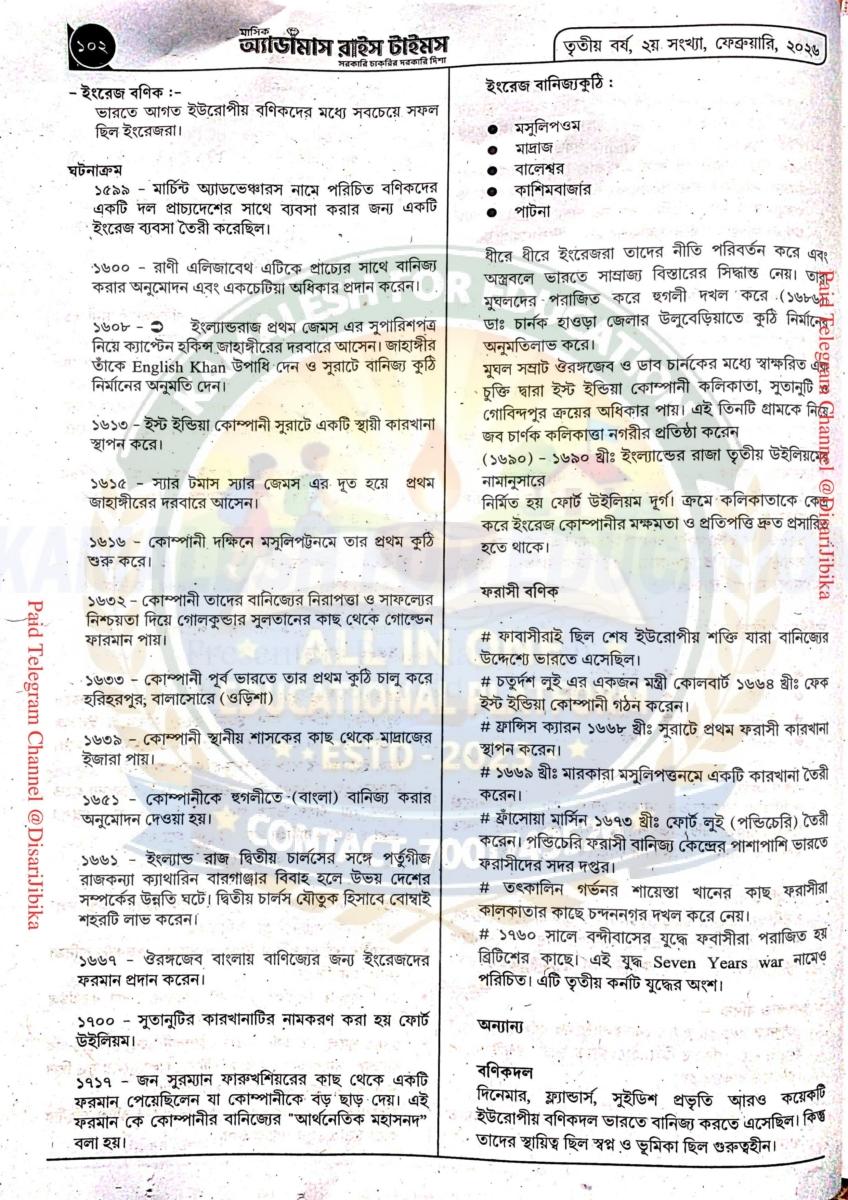 ১০২
মাসিক
অ্যাডামাস রাইস টাইমস
সরকারি চাকরির দরকারি দিশা
তৃতীয় বর্ষ, ২য় সংখ্যা, ফেব্রুয়ারি, ২০২৬
- ইংরেজ বণিক :-
ভারতে আগত ইউরোপীয় বণিকদের মধ্যে সবচেয়ে সফল
ছিল ইংরেজরা।
ঘটনাক্রম
১৫৯৯ - মার্চিন্ট অ্যাডভেঞ্চারস নামে পরিচিত বণিকদের
একটি দল প্রাচ্যদেশের সাথে ব্যবসা করার জন্য একটি
ইংরেজ ব্যবসা তৈরী করেছিল।
১৬০০ - রাণী এলিজাবেথ এটিকে প্রাচ্যের সাথে বানিজ্য
করার অনুমোদন এবং একচেটিয়া অধিকার প্রদান করেন।
১৬০৮ - ➲ ইংল্যান্ডরাজ প্রথম জেমস এর সুপারিশপত্র
নিয়ে ক্যাপ্টেন হকিন্স জাহাঙ্গীরের দরবারে আসেন। জাহাঙ্গীর
তাঁকে English Khan উপাধি দেন ও সুরাটে বানিজ্য কুঠি
নির্মানের অনুমতি দেন।
১৬১৩ - ইস্ট ইন্ডিয়া কোম্পানী সুরাটে একটি স্থায়ী কারখানা
স্থাপন করে।
১৬১৫ - স্যার টমাস স্যার জেমস এর দূত হয়ে প্রথম
জাহাঙ্গীরের দরবারে আসেন।
১৬১৬ - কোম্পানী দক্ষিনে মসুলিপট্টনমে তার প্রথম কুঠি
শুরু করে।
১৬৩২ - কোম্পানী তাদের বানিজ্যের নিরাপত্তা ও সাফল্যের
নিশ্চয়তা দিয়ে গোলকুন্ডার সুলতানের কাছ থেকে গোল্ডেন
ফারমান পায়।
১৬৩৩ - কোম্পানী পূর্ব ভারতে তার প্রথম কুঠি চালু করে
হরিহরপুর; বালাসোরে (ওড়িশা)
১৬৩৯ - কোম্পানী স্থানীয় শাসকের কাছ থেকে মাদ্রাজের
ইজারা পায়।
১৬৫১ - কোম্পানীকে হুগলীতে (বাংলা) বানিজ্য করার
অনুমোদন দেওয়া হয়।
১৬৬১ - ইংল্যান্ড রাজ দ্বিতীয় চার্লসের সঙ্গে পর্তুগীজ
রাজকন্যা ক্যাথারিন বারগাঞ্জার বিবাহ হলে উভয় দেশের
সম্পর্কের উন্নতি ঘটে। দ্বিতীয় চার্লস যৌতুক হিসাবে বোম্বাই
শহরটি লাভ করেন।
১৬৬৭ - ঔরঙ্গজেব বাংলায় বাণিজ্যের জন্য ইংরেজদের
ফরমান প্রদান করেন।
১৭০০ - সুতানুটির কারখানাটির নামকরণ করা হয় ফোর্ট
উইলিয়ম।
১৭১৭ - জন সুরম্যান ফারুখশিয়রের কাছ থেকে একটি
ফরমান পেয়েছিলেন যা কোম্পানীকে বড় ছাড় দেয়। এই
ফরমান কে কোম্পানীর বানিজ্যের "আর্থনেতিক মহাসনদ"
বলা হয়।
ইংরেজ বানিজ্যকুঠি :
● মসুলিপওম
● মাদ্রাজ
● বালেশ্বর
● কাশিমবাজার
● পাটনা
ধীরে ধীরে ইংরেজরা তাদের নীতি পরিবর্তন করে এবং
অস্ত্রবলে ভারতে সাম্রাজ্য বিস্তারের সিদ্ধান্ত নেয়। তারা
মুঘলদের পরাজিত করে হুগলী দখল করে (১৬৮৬)
ডাঃ চার্নক হাওড়া জেলার উলুবেড়িয়াতে কুঠি নির্মানের
অনুমতিলাভ করে।
মুঘল সম্রাট ঔরঙ্গজেব ও ডাব চার্নকের মধ্যে স্বাক্ষরিত এক
চুক্তি দ্বারা ইস্ট ইন্ডিয়া কোম্পানী কলিকাতা, সুতানুটি ও
গোবিন্দপুর ক্রয়ের অধিকার পায়। এই তিনটি গ্রামকে নিয়ে
জব চার্ণক কলিকাত্তা নগরীর প্রতিষ্ঠা করেন
(১৬৯০) - ১৬৯০ খ্রীঃ ইংল্যান্ডের রাজা তৃতীয় উইলিয়মের
নামানুসারে
নির্মিত হয় ফোর্ট উইলিয়ম দূর্গ। ক্রমে কলিকাতাকে কেন্দ্র
করে ইংরেজ কোম্পানীর মক্ষমতা ও প্রতিপত্তি দ্রুত প্রসারিত
হতে থাকে।
ফরাসী বণিক
# ফাবাসীরাই ছিল শেষ ইউরোপীয় শক্তি যারা বানিজ্যের
উদ্দেশ্যে ভারতে এসেছিল।
# চতুর্দশ লুই এর একজন মন্ত্রী কোলবার্ট ১৬৬৪ খ্রীঃ ফেক
ইস্ট ইন্ডিয়া কোম্পানী গঠন করেন।
# ফ্রান্সিস ক্যারন ১৬৬৮ খ্রীঃ সুরাটে প্রথম ফরাসী কারখানা
স্থাপন করেন।
# ১৬৬৯ খ্রীঃ মারকারা মসুলিপত্তনমে একটি কারখানা তৈরী
করেন।
# ফ্রাঁসোয়া মার্সিন ১৬৭৩ খ্রীঃ ফোর্ট লুই (পন্ডিচেরি) তৈরী
করেন। পন্ডিচেরি ফরাসী বানিজ্য কেন্দ্রের পাশাপাশি ভারতে
ফরাসীদের সদর দপ্তর।
# তৎকালিন গর্ভনর শায়েস্তা খানের কাছ ফরাসীরা
কালকাতার কাছে চন্দননগর দখল করে নেয়।
# ১৭৬০ সালে বন্দীবাসের যুদ্ধে ফবাসীরা পরাজিত হয়
ব্রিটিশের কাছে। এই যুদ্ধ Seven Years war নামেও
পরিচিত। এটি তৃতীয় কর্নাট যুদ্ধের অংশ।
অন্যান্য
বণিকদল
দিনেমার, ফ্ল্যান্ডার্স, সুইডিশ প্রভৃতি আরও কয়েকটি
ইউরোপীয় বণিকদল ভারতে বানিজ্য করতে এসেছিল। কিন্তু
তাদের স্থায়িত্ব ছিল স্বপ্ন ও ভূমিকা ছিল গুরুত্বহীন।
Paid Telegram Channel @DisariJibika
Paid Telegram Channel @DisariJibika
KAMALESH FOR EDUCATION
ALL IN ONE
EDUCATIONAL
ESTD - 2023